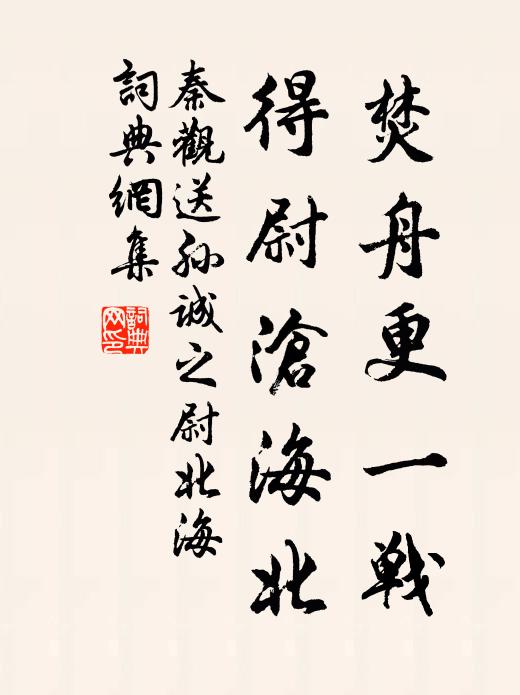 焚舟更一戰
得尉滄海北
秦觀送孙诚之尉北海
詞典網集
詞典
网印